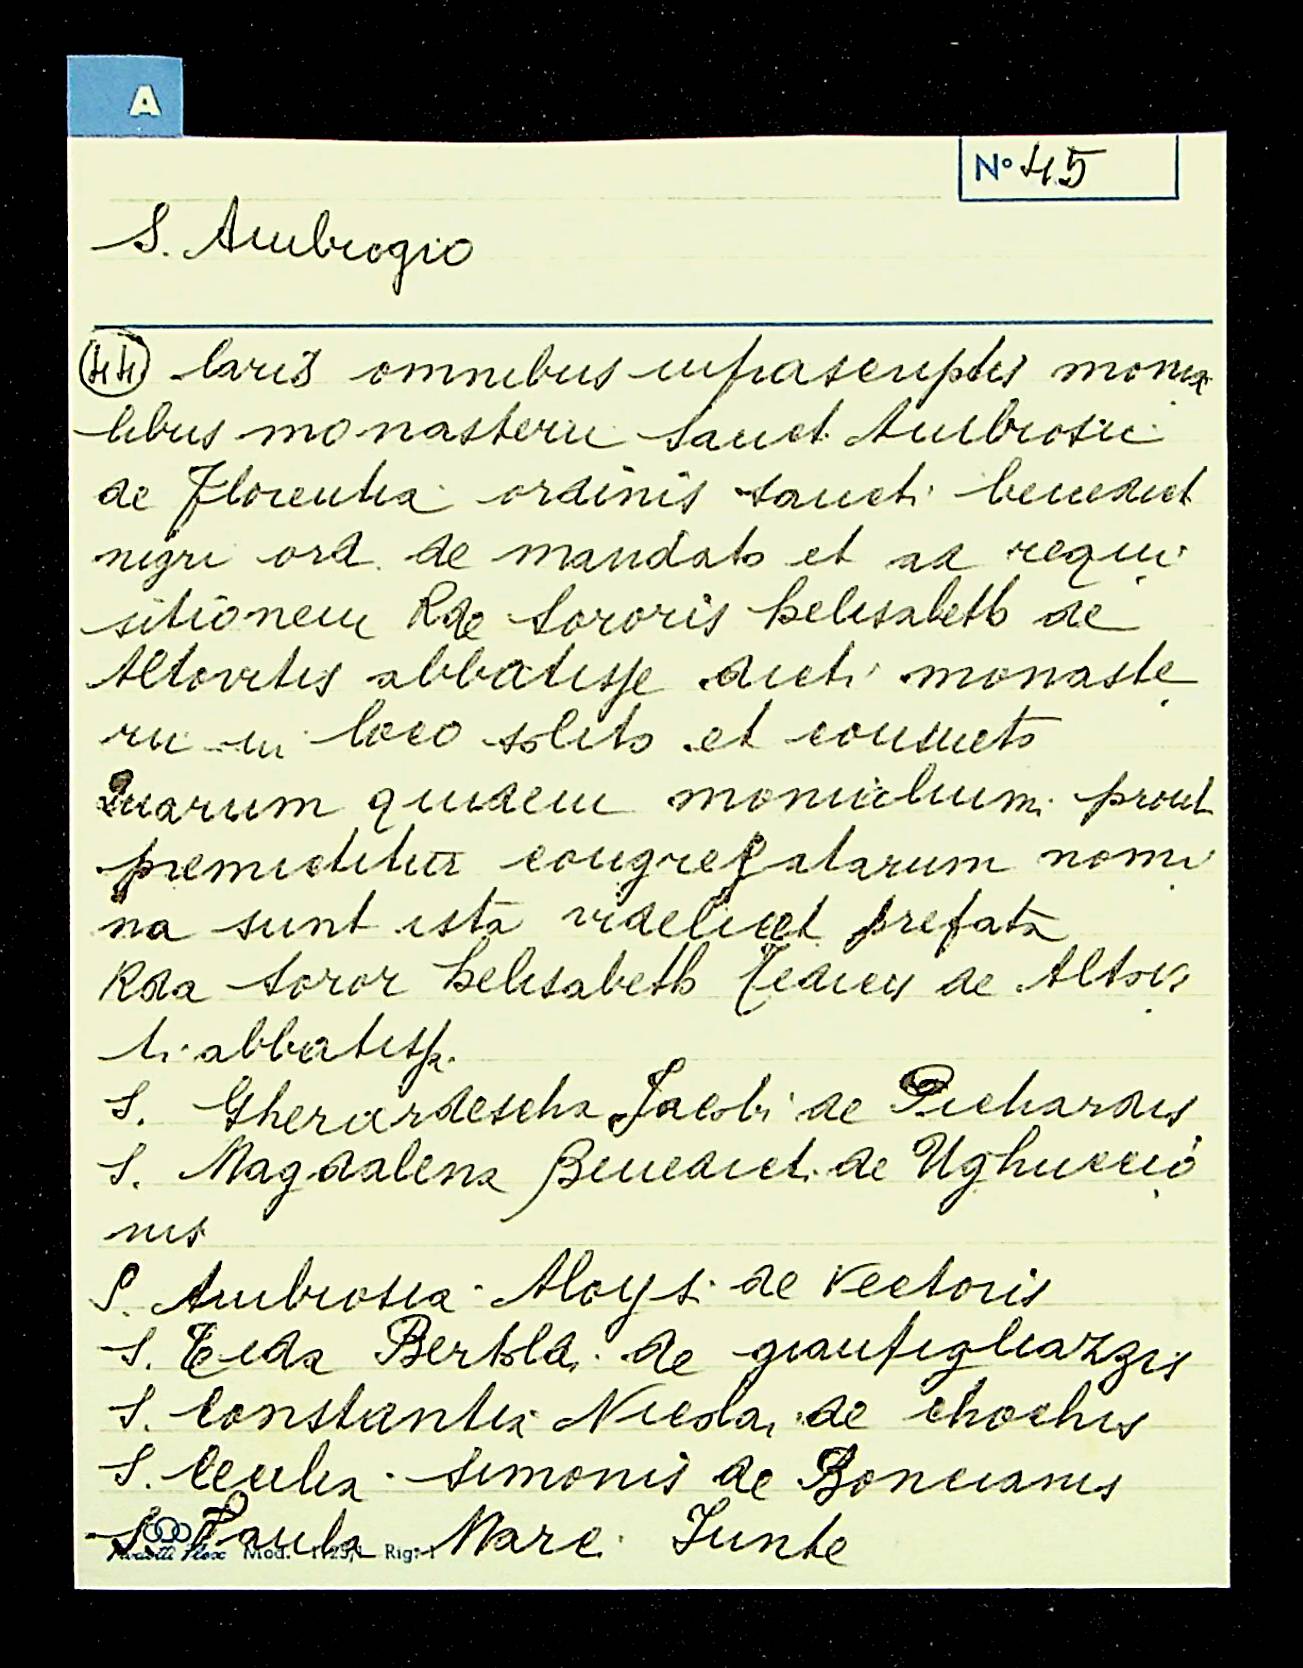 A
N° 45
S. Ambrogio
44 laris omnibus infrascriptis monia
libus monasterii Sancti Ambrosii
de Florentia ordinis sancti benedict
nigri ord. de mandato et ad requi
sitionem Rde Sororis helisabeth de
Altovitis abbatisse dicti monaste
rii in loco solito et consueto
Quarum quidem monialium prout
premictitur congregatarum nomi
na sunt ista videlicet prefata
Rda Soror helisabeth Tedicy de Altovi
ti abbatissa.
S. Gherardescha Jacobi de Pichardis
S. Magdalena Benedict. de Ughuccio
nis
S. Ambrosia Aloysi de Vectoris
S. Bertoldi de gianfigliazzis
S. Constantia Nicolai de chochis
S. Cecilia Simonis de Boncianis
S. Paula Marci Junte
Mod. 1125/1 Rig: 1